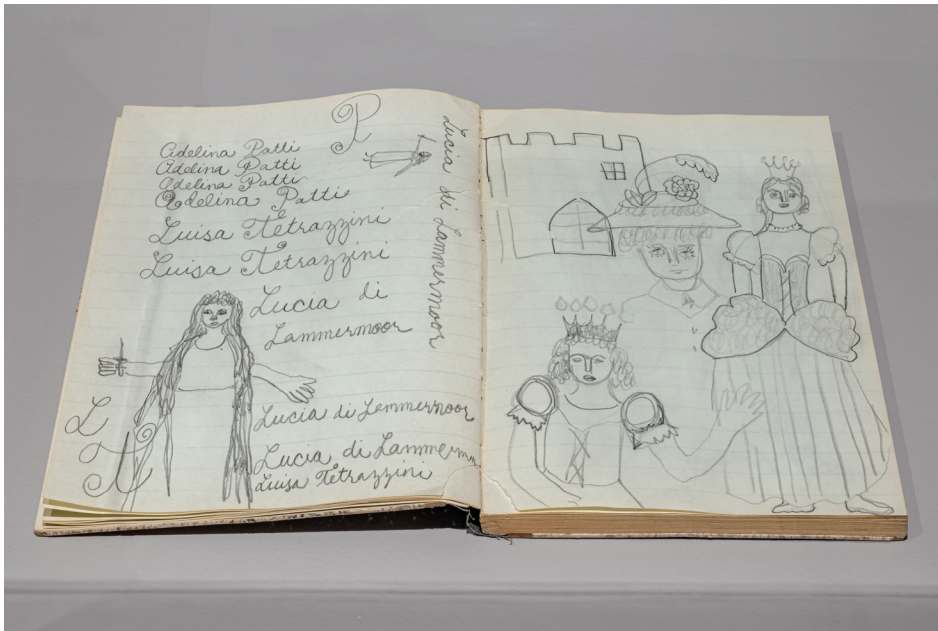 P
Adelina Patti
Adelina Patti
Adelina Patti
Adelina Patti
Luisa Tetrazzini
Luisa Tetrazzini
Lucia di
Lammermoor
Lucia di Lammermoor
Lucia di Lammermoor
Luisa Tetrazzini
L
T
Lucia di Lammermoor